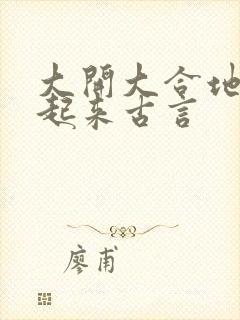 大開大合地
起来古言
廖甫